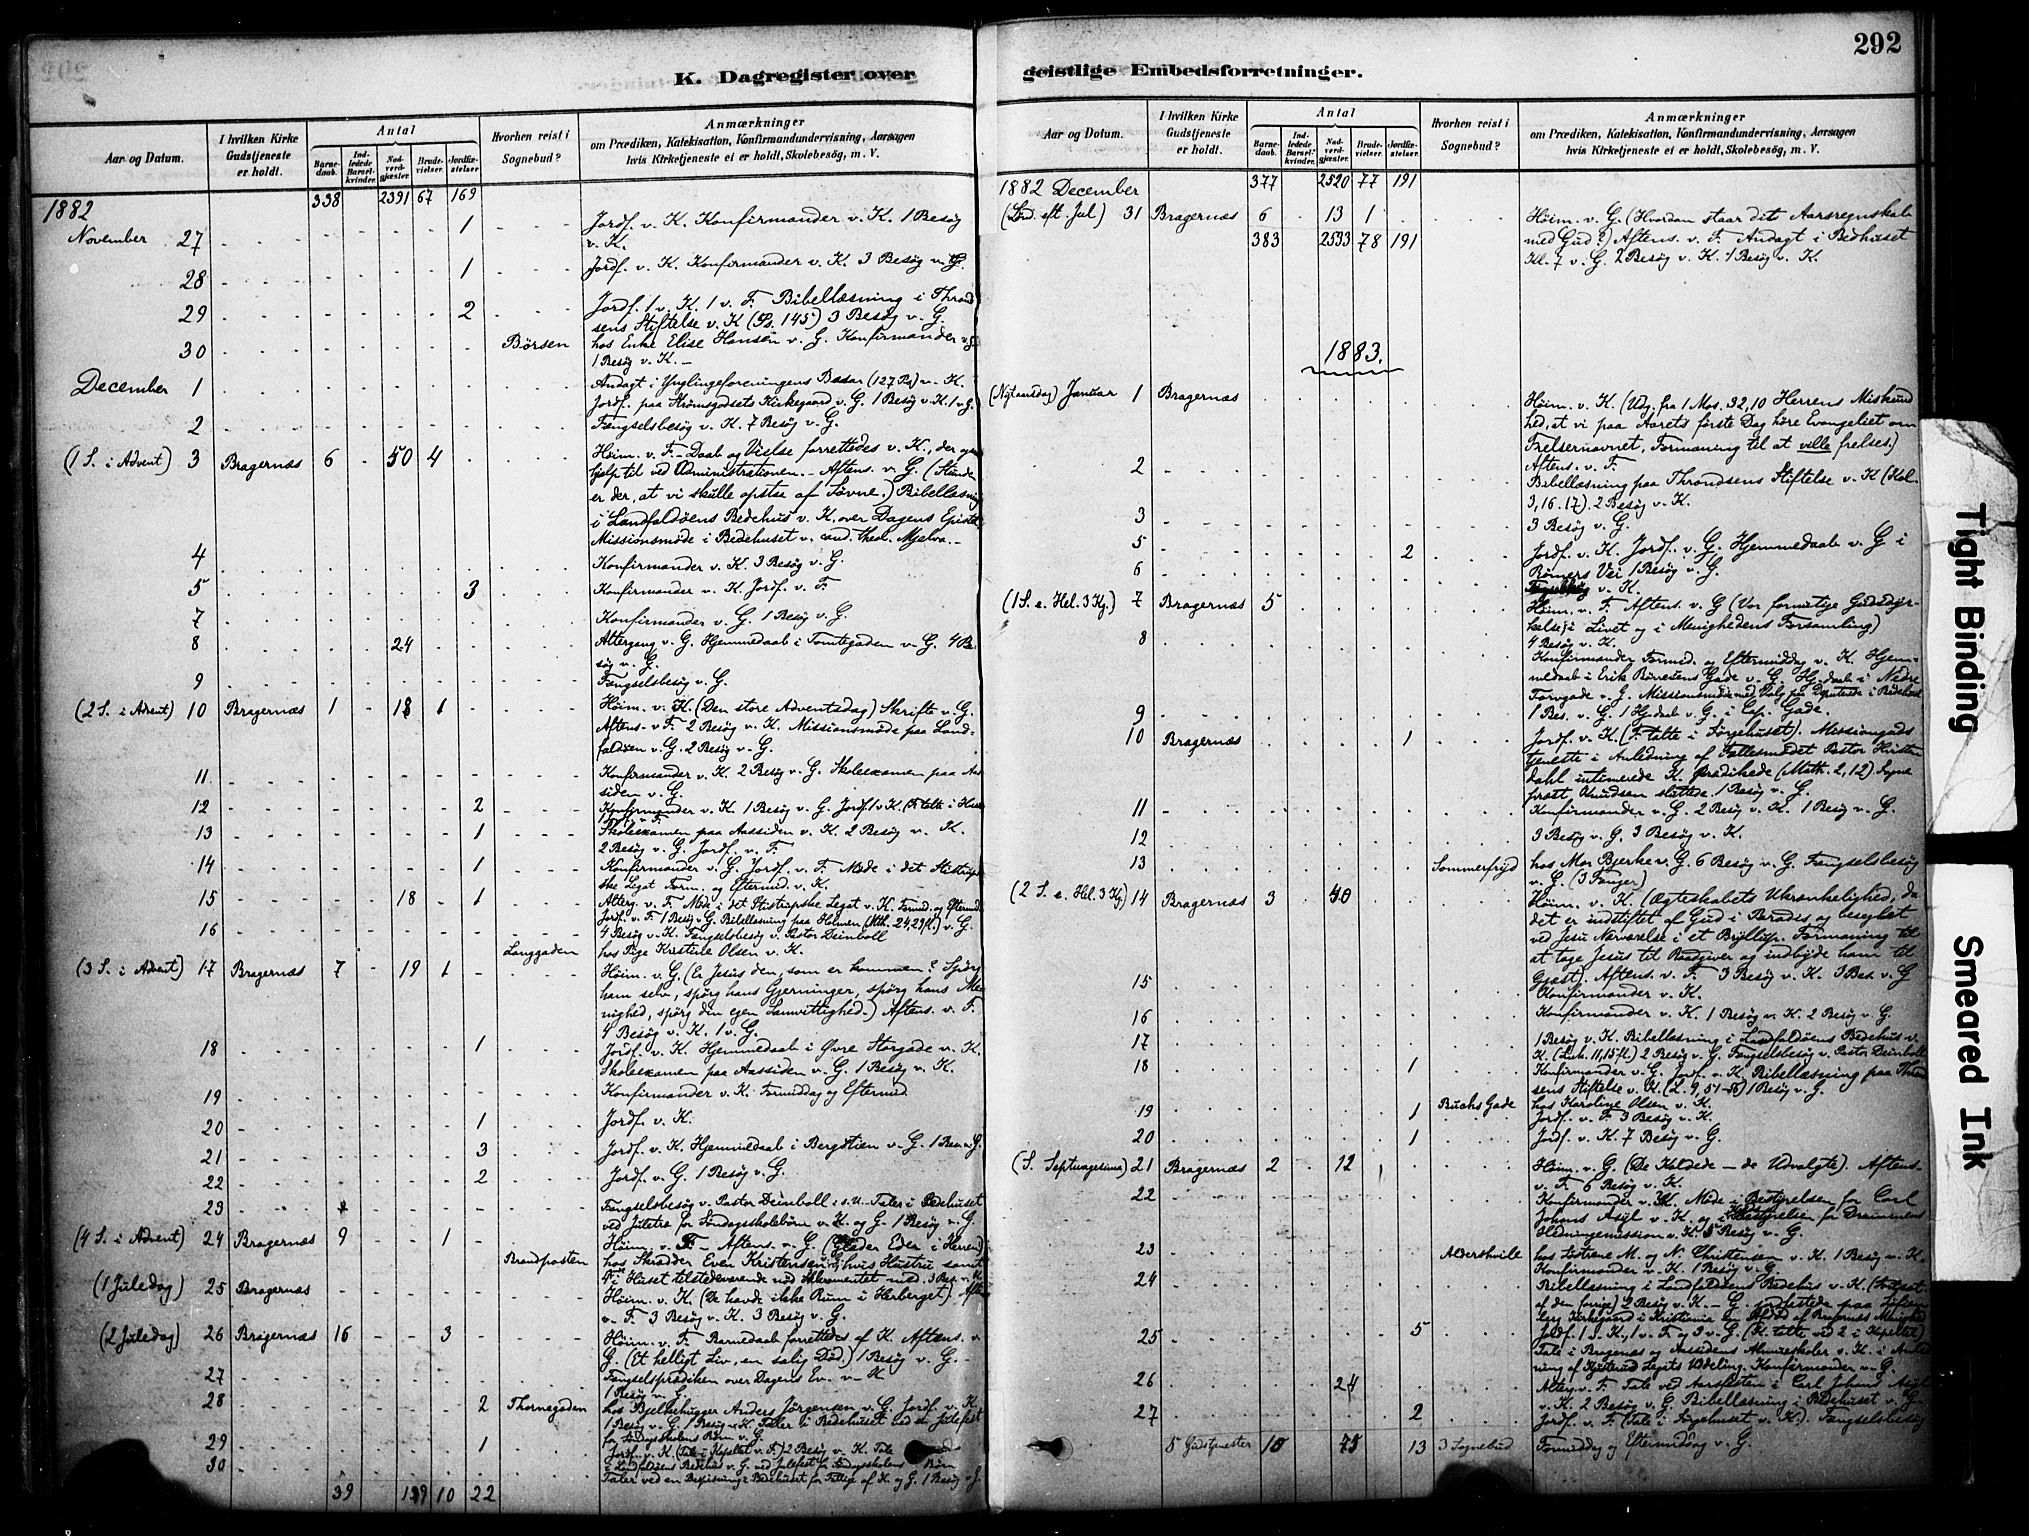 292
K. Dagregister over
geistlige Embedsforretninger.
Aar og Datum.
I hvilken Kirke Gudstjeneste er holdt.
Antal
Barnedaab.
Indledede Barselkvinder.
Nadverdgjæster.
Brudevielser.
Jordfæstelser
Hvorhen reist i Sognebud?
Anmærkninger
om Prædiken, Katekisation, Konfirmandundervisning, Aarsagen
hvis Kirketjeneste ei er holdt, Skolebesög, m. V.
338 2391 67 169
1882
November 27 1 Jordf. v. K. Konfirmander v. K. 1 Besøg
v. K.
28 1 Jordf. v. K. Konfirmander v. K. 3 Besøg v. G.
29 2 Jordf. 1 v. K. 1 v. F. Bibellæsning i Thrond
sens Stiftelse v. K (Ps. 145) 3 Besøg v. G.
30 Börsen hos Enke Elise Hansen v. G. Konfirmander v. G.
1 Besøg v. K. –
December 1 Andagt i Ynglingeforeningens Basar (127 Ps) v. K.
Jordf. paa Strømsgodsets Kirkegaard v. G. 1 Besøg v. K. 1 v. G.
2 Fængselsbesøg v. K. 7 Besøg v. G.
(1 S. i Advent) 3 Bragernæs 6 50 4 Høim. v. F. – Daab og Vielse forrettedes v. K., der
hjalp til ved Administrationen. – Aftens. v. G. (Stunde
er der, at vi skulle opstaa af Søvne.) Bibellæsning
i Landfaldøens Bedehus v. K. over Dagens Epistel
Missionsmøde i Bedehuset v. cand. theol. Mjelva. –
4 Konfirmander v. K. 3 Besøg v. G.
5 3 Konfirmander v. K. Jordf. v. F.
7 Konfirmander v. G. 1 Besøg v. G.
8 24 Altergang v. G. Hjemmedaab i Tomtegaden v. G. 4 Be-
søg v. G.
9 Fængselsbesøg v. G.
(2 S. i Advent) 10 Bragernæs 1 18 1 Høim. v. K. (Den store Adventsdag) Skrifte v. G.
Aftens. v. F. 2 Besøg v. K. Missionsmøde paa Land-
faldøen v. G. 2 Besøg v. G.
11 Konfirmander v. K. 2 Besøg v. G. Skoleexamen paa Aas
siden v. G.
12 2 Konfirmander v. K. 1 Besøg v. G. Jordf. 1 v. K.
13 1 Skoleexamen paa Aassiden v. K. 2 Besøg v. K.
2 Besøg v. G. Jordf. v. F.
14 1 Konfirmander v. G. Jordf. v. F. Møde i det
ske Legat Form. og Eftermid. v. K.
15 18 1 Alterg. v. F. Møde i det Legat v. K. Formid. og Efterm.
Jordf. v. F. 1 Besøg v. G. Bibellæsning paa Holmen (Mth. 24, 23 fl.) v. G.
16 4 Besøg v. K. Fængselsbesøg v. Pastor Deinboll
Langgaden hos Pige Kristine Olsen v. K.
(3 S. i Advent) 17 Bragernæs 7 19 1 Høim. v. G. (Er Jesus den, som er kommen? Spørg
ham selv, spørg hans Gjerninger, spørg hans Me-
nighed, spørg din egen Samvittighed.) Aftens. v. F.
4 Besøg v. K. 1 v. G.
18 1 Jordf. v. K. Hjemmedaab i Øvre Storgade v. K.
Skoleexamen paa Aassiden v. G. 1 Besøg v. K.
19 Konfirmander v. K. Formiddag og Eftermid.
20 1 Jordf. v. K.
21 3 Jordf. v. K. Hjemmedaab i Bergstien v. G. 1 Bes. v. G.
22 2 Jordf. v. G. 1 Besøg v. G.
23 Fængselsbesøg v. Pastor Deinboll i. s. U. Taler i Bedehuset
ved Juletræ for Søndagsskolebørn v. K. og G. 1 Besøg v. G.
(4 S. i Advent) 24 Bragernæs 9 1 Høim. v. F. Aftens. v. G. (Glæder Eder i Herren)
Brandposten hos Skrædder Even Kristensen, hvis Hustru samt
4 i Huset tilstedeværende nød Alteramentet med. 3 Bes. v. K.
(1 Juledag) 25 Bragernæs Høim. v. K. (De havde ikke Rum i Herberget) Aftens
v. F. 3 Besøg v. K. 3 Besøg v. G.
(2 Juledag) 26 Bragernæs 16 3 Høim. v. F. Barnedaab forrettedes af K. Aftens. v.
G. (Et helligt Liv, en salig Død.) 1 Besøg v. G. –
27 Fængselsprædiken over Dagens Ev. v. K
1 Besøg v. G.
28 2 Thornegaden hos Bjelkehugger Anders Jörgensen v. G. Jordf. v. K.
1 Besøg v. G. 1 Besøg v. K. Taler i Bedehuset ved en Julefest
for Søndagsskolens Børn v. G.
29 1 Jordf. v. K. (Tale i Kapellet v. F.) 2 Besøg v. K. Tale
30 i Landfaldøens Bedehus v. G. ved Julefest for Søndagsskolens Børn
Taler ved en Bespisning i Bedehuset for Fattige af K. og G. 1 Besøg v. G.
39 129 10 22
Aar og Datum.
I hvilken Kirke Gudstjeneste er holdt.
Antal
Barnedaab.
Indledede Barselkvinder.
Nadverdgjæster.
Brudevielser.
Jordfæstelser.
Hvorhen reist i Sognebud?
Anmærkninger
om Prædiken, Katekisation, Konfirmandundervisning, Aarsagen
hvis Kirketjeneste ei er holdt, Skolebesög, m. V.
1882 December 377 2520 77 191
(Sønd. eft. Jul) 31 Bragernæs 6 13 1 Høim. v. G. (Hvordan staar dit Aarsregnskab
383 2533 78 191 med Gud?) Aftens. v. F. Andagt i Bedhuset
Kl. 7 v. G. 2 Besøg v. K. 1 Besøg v. K.
1883.
(Nytaarsdag) Januar 1 Bragernæs Høim. v. K. (Udg. fra 1 Mos. 32,10 Herrens Miskund
hed, at vi paa Aarets første Dag høre Evangeliet om
Frelsernavnet, Formaning til at ville frelses.)
Aftens. v. F.
2 Bibellæsning paa Throndsens Stiftelse v. K (Kol.
3, 16. 17). 2 Besøg v. K.
3 3 Besøg v. G.
5 2 Jordf. v. K. Jordf. v. G. Hjemmedaab v. G i
Römers Vei 1 Besøg v. G.
6 Fængselsbesøg v. K.
(1 S. e. Hel. 3 Kg.) 7 Bragernæs 5 Høim. v. F. Aftens. v. G (Vor fornuftige Gudsdyr-
kelse i Livet og i Menighedens Forsamling)
4 Besøg v. K.
8 Konfirmander Formid. og Eftermiddag v. K. Hjem-
medaab i Erik Börresens Gade v. G. Hj.daab i Nedre
Torvgade v. G. Missionsmøde med Valg paa Deputerede i Bedehuset
9 1 Bes. v. G. 1 Hj.daab v. G. i Gade.
10 Bragernæs 1 Jordf. v. K. (F. talte i Sørgehuset). Missionsguds
tjeneste i Anledning af Fællesmødet Pastor
dahl intimerede K. prædikede (Math. 2, 12). Sogne
præst Knudsen sluttede. 1 Besøg v. G.
11 Konfirmander v. G. 2 Besøg v. K. 1 Besøg v. G.
12 3 Besøg v. G. 3 Besøg v. K.
13 Sommerfryd hos Mor Bjerke v. G. 6 Besøg v. G. Fængselsbesøg
v. G. (3 Fanger)
(2 S. e. Hel. 3 Kg) 14 Bragernæs 3 40 Høim. v. K. (Ægteskabets Ukrænkelighed, da
det er indstiftet af Gud i Paradis og beseglet
ved Jesu Nærværelse i et Bryllup. Formaning til
at tage Jesus til Raadgiver og indbyde ham til
Gjæst). Aftens. v. F. 3 Besøg v. K. 3 Bes. v. G
15 Konfirmander v. K.
16 Konfirmander v. K. 1 Besøg v. K. 2 Besøg v. G.
17 1 Besøg v. K. Bibellæsning i Landfaldøens Bedehus v.
K. (Luk. 11, 15 fl.) 2 Besøg v. G. Fængselsbesøg v. Pastor Deinboll
18 1 Konfirmander v. G. Jordf. v. K. Bibellæsning paa Thrond
sens Stiftelse v. K. (L. 9, 51–56) 1 Besøg v. G.
19 1 Buchs Gade hos Karoline Olsen v. K.
Jordf. v. F. 3 Besøg v. K.
20 1 Jordf. v. K. 7 Besøg v. G.
(S. Septuagesima) 21 Bragernæs 2 12 Høim. v. G. (De Kaldede – de Udvalgte). Aftens.
v. F. 6 Besøg v. K.
22 Konfirmander v. K. Møde i Bestyrelsen for Carl
Johans Asyl v. K. og i Bestyrelsen for Drammens
Hedningemission v. K. 5 Besøg v. G.
23 Aldershvile hos Søstrene M. og N. Christensen v. K. 1 Besøg v. K.
Konfirmander v. K. 1 Besøg v. G.
24 Bibellæsning i Landfaldøens Bedehus v. K.
af den forrige) 2 Besøg v. K. – G. paa
Kirkegaard i Kristiania en af Bragernæs Menighed
25 5 Jordf. 1 v. K., 1 v. F. og 3 v. G. (K. talte ved 2 i Kapellet)
Tale i Bragernæs og Aassidens Almueskoler v. K. i Anled
ning af Legats Uddeling. Konfirmander v. G.
26 24 Alterg. v. F. Tale ved Aarsfesten i Carl Johans Asyl
v. K. 2 Besøg v. G. Bibellæsning i Bedehuset v. G.
27 2 Jordf. v. F. (Tale i Sørgehuset v. K.) Fængselsbesøg
5 Gudstjenester 10 75 13 3 Sognebud Formiddag og Eftermiddag v. G.
Tight Binding
Smeared Ink